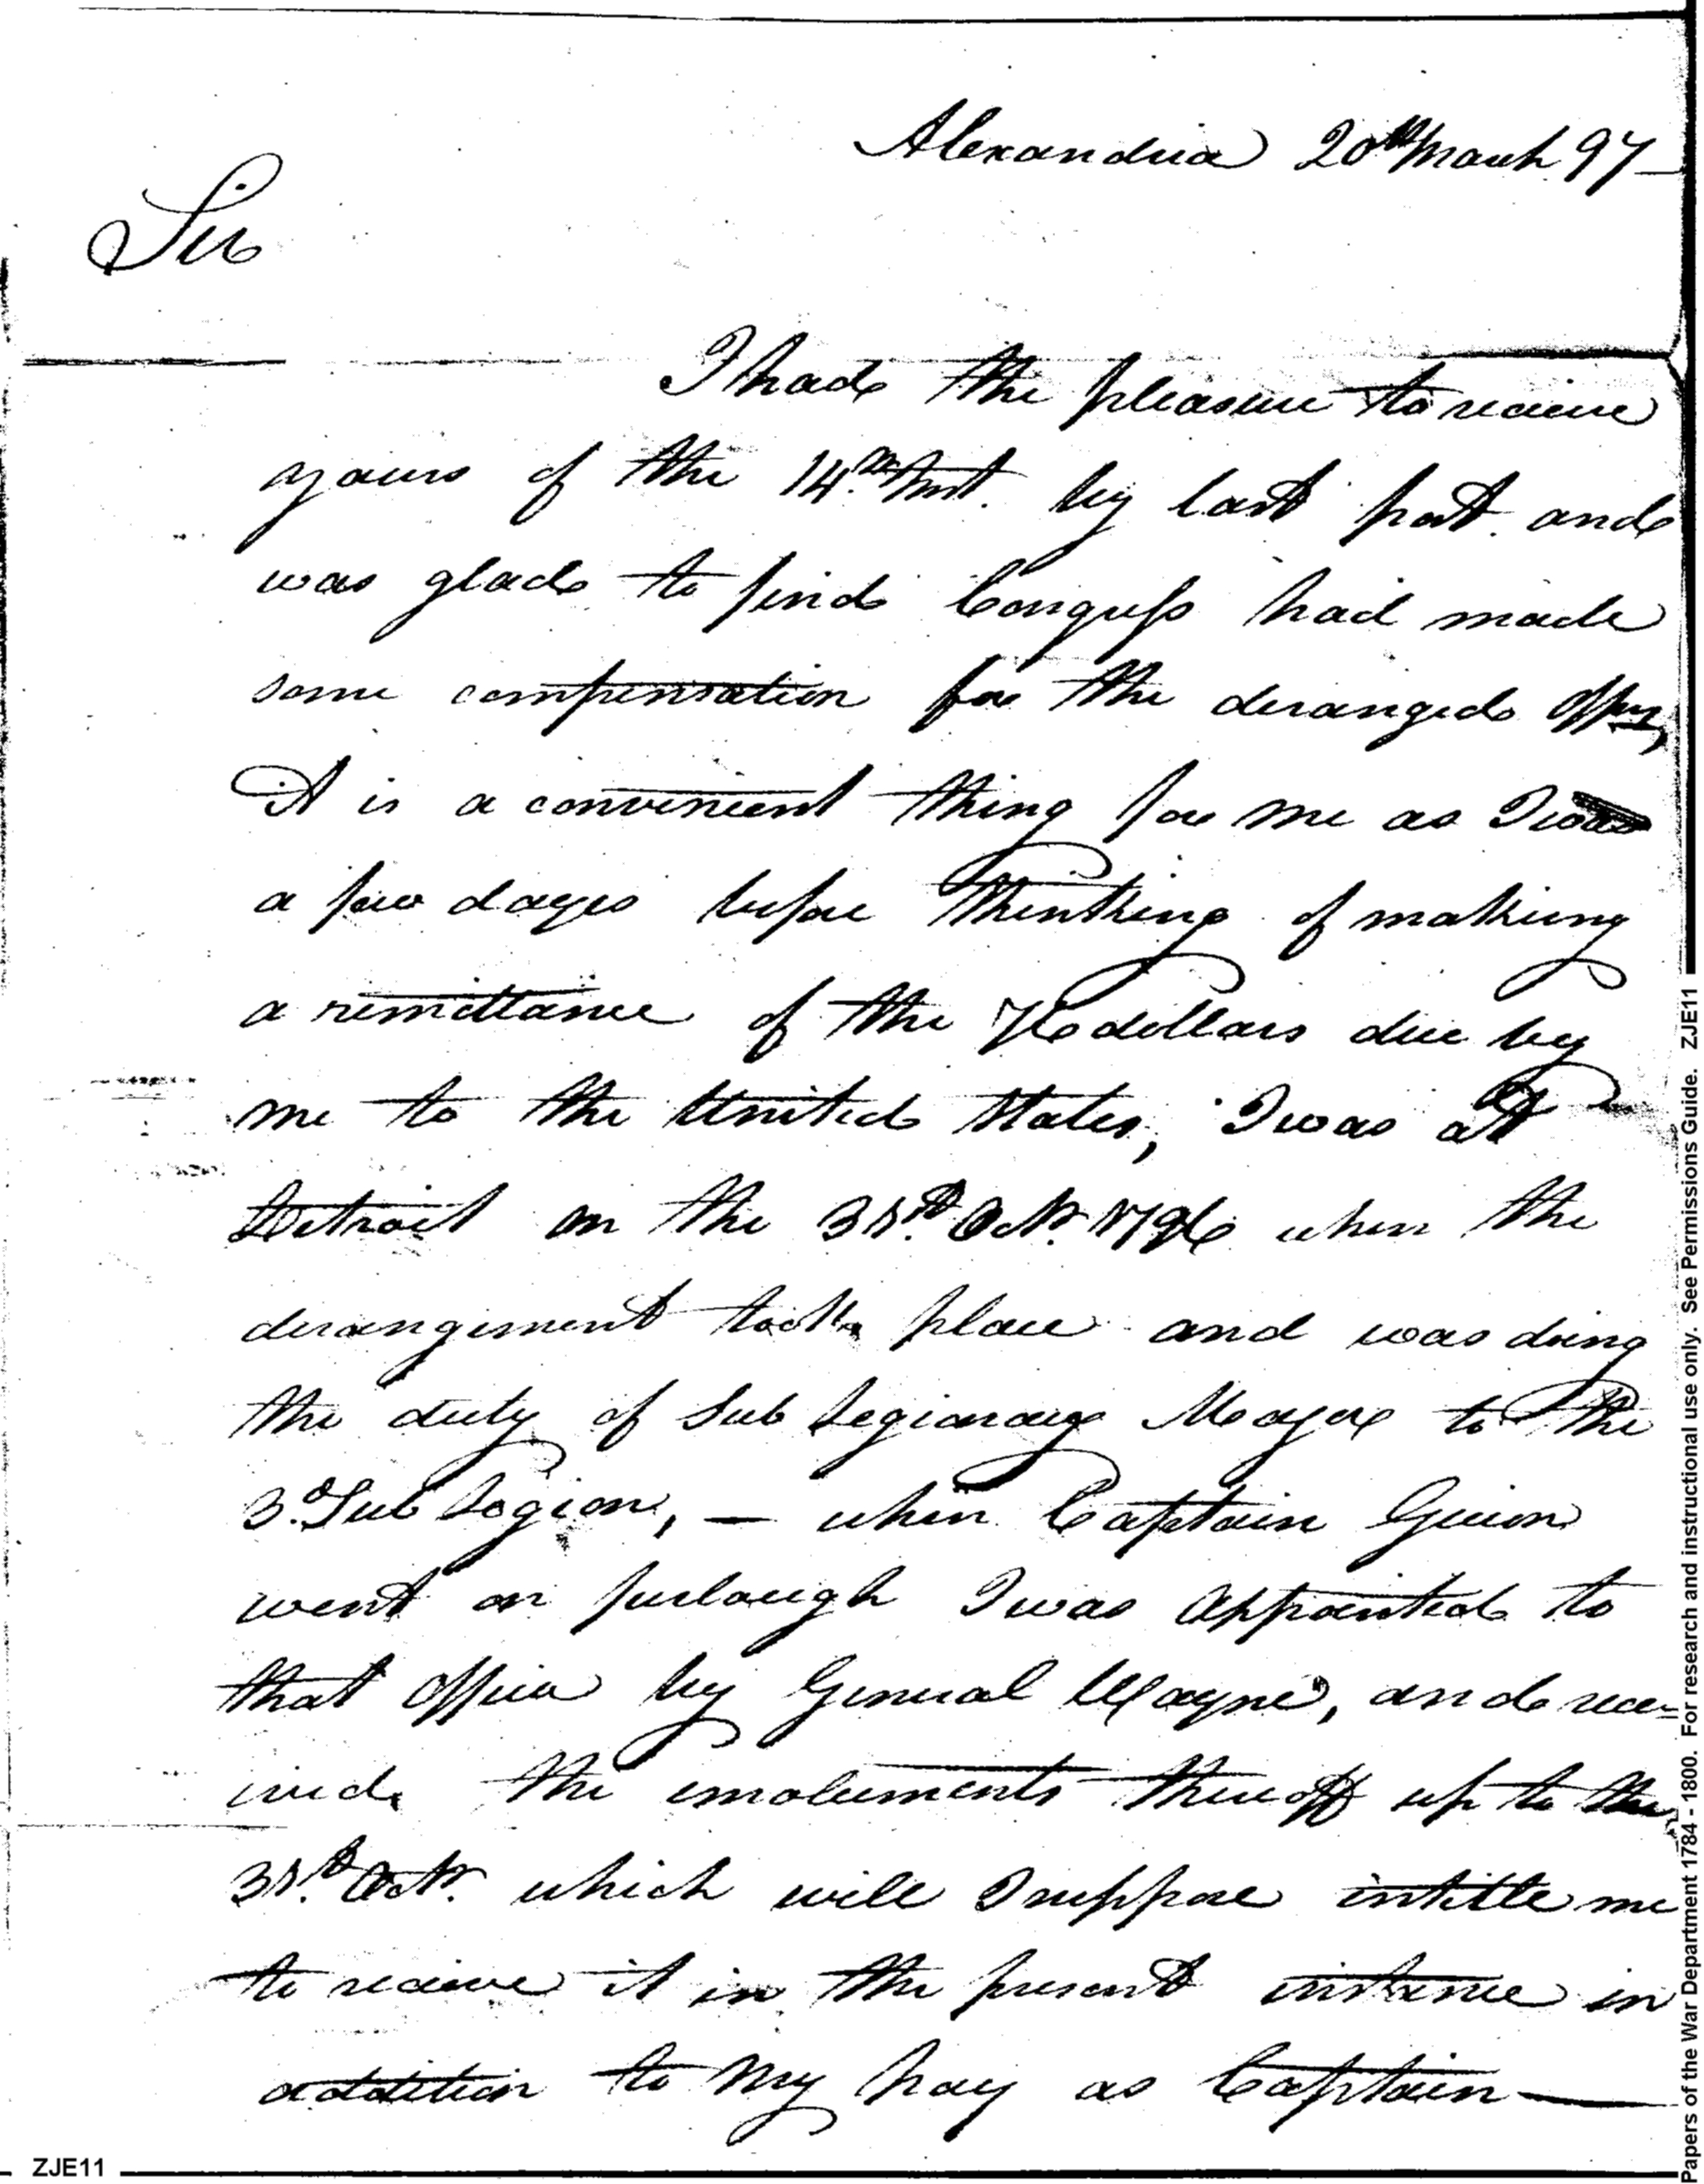 Alexandria 20th March 97
Sir
I had the pleasure to receive
yours of the 14th Inst. by last post. and
was glad to find Congress had made
some compensation for the deranged Offrs,
It is a convenient thing for me as I was
a few days before thinking of making
a remittance of the 76 dollars due by
me to the United States, I was at
Detroit on the 31st. Octr. 1796 when the
derangement took place and was doing
the duty of Sub Legionary Major to the
3d. Sub Legion, — when Captain Guion
went on furlough I was appointed to
that office by General Wayne, and rece-
ived the emoluments thereoff up to the
31st. Octr. which will I suppose intitle me
to receive it in the present instance in
addition to my pay as Captain —
ZJE11
Papers of the War Department 1784 - 1800. For research and instructional use only. See Permissions Guide. ZJE11